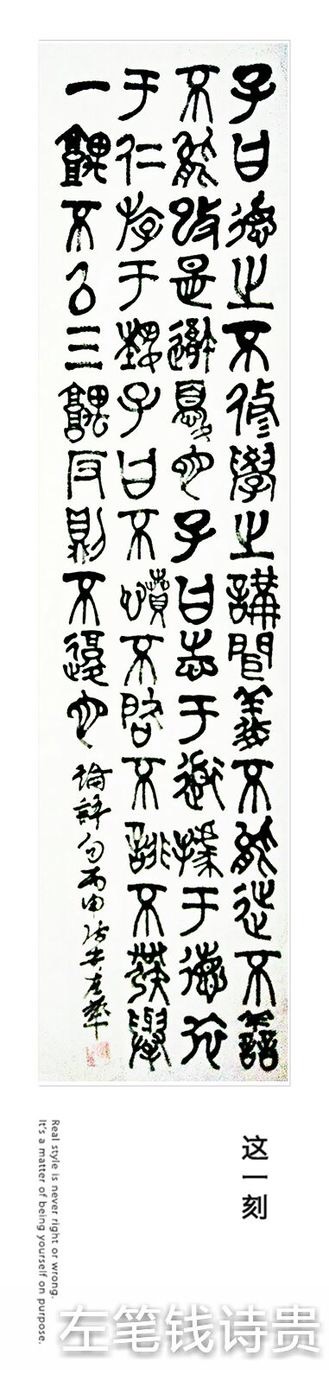 子曰德之不修學之講聞義不能徙不善
不能改是吾憂也子曰志于道據于德依
于仁游于藝子曰不憤不啟不悱不發舉
一隅不以三隅反則不復也
論語句丙申左筆
这一刻
Real style is never right or wrong.
It's a matter of being yourself on purpose.
左笔钱诗贵